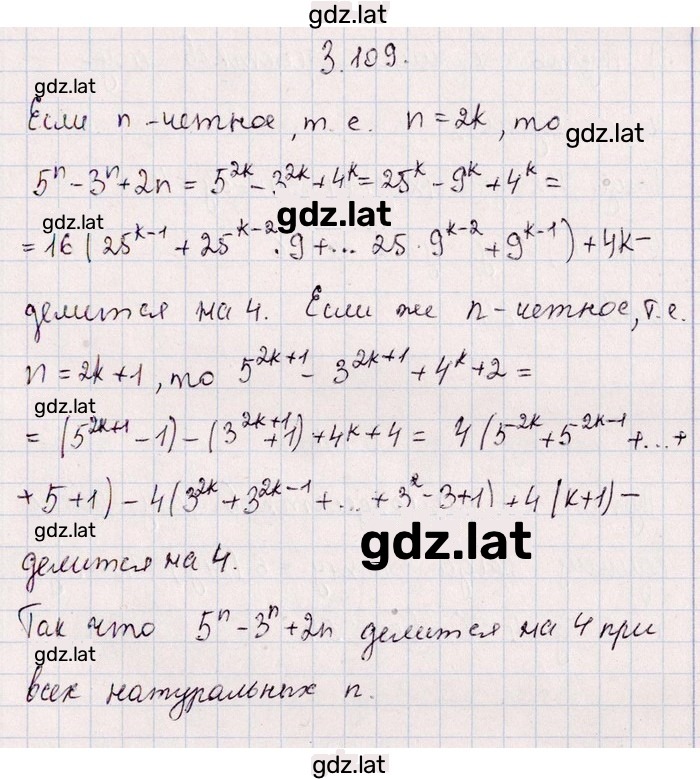 gdz.lat
3.109.
gdz.lat
Если n - четное, т. е. n = 2k, то
gdz.lat
5ⁿ - 3ⁿ + 2n = 5²ᵏ - 3²ᵏ + 4ᵏ = 25ᵏ - 9ᵏ + 4ᵏ =
gdz.lat gdz.lat
= 16 (25ᵏ⁻¹ + 25ᵏ⁻² · 9 + ... 25 · 9ᵏ⁻² + 9ᵏ⁻¹) + 4k -
делится на 4. Если же n - четное, т.е.
gdz.lat
n = 2k + 1, то 5²ᵏ⁺¹ - 3²ᵏ⁺¹ + 4ᵏ + 2 =
gdz.lat
= (5²ᵏ⁺¹ - 1) - (3²ᵏ⁺¹ + 1) + 4k + 4 = 4 (5²ᵏ + 5²ᵏ⁻¹ + ... +
+ 5 + 1) - 4 (3²ᵏ + 3²ᵏ⁻¹ + ... + 3² - 3 + 1) + 4 (k + 1) -
gdz.lat gdz.lat
делится на 4.
Так что 5ⁿ - 3ⁿ + 2n делится на 4 при
gdz.lat
всех натуральных n.
gdz.lat